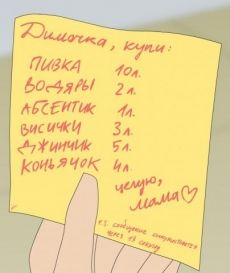 Димочка, купи:
ПИВКА 10л.
ВОДЯРЫ 2л.
АБСЕНТИК 1л.
ВИСИЧКИ 3л.
ДЖИНЧИК 5л.
КОНЬЯЧОК 4л.
целую,
мама♡
P.S. сообщение самоуничтожится
через 13 секунд